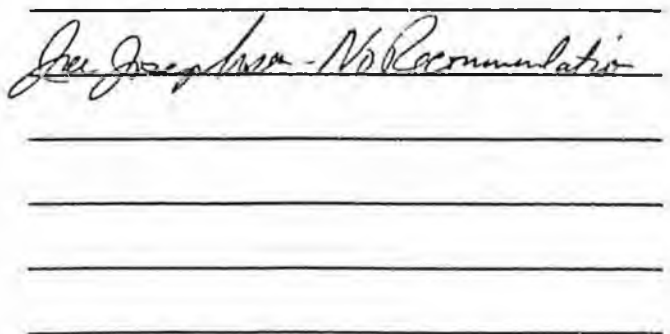 Joe Josephson - No Recommendation